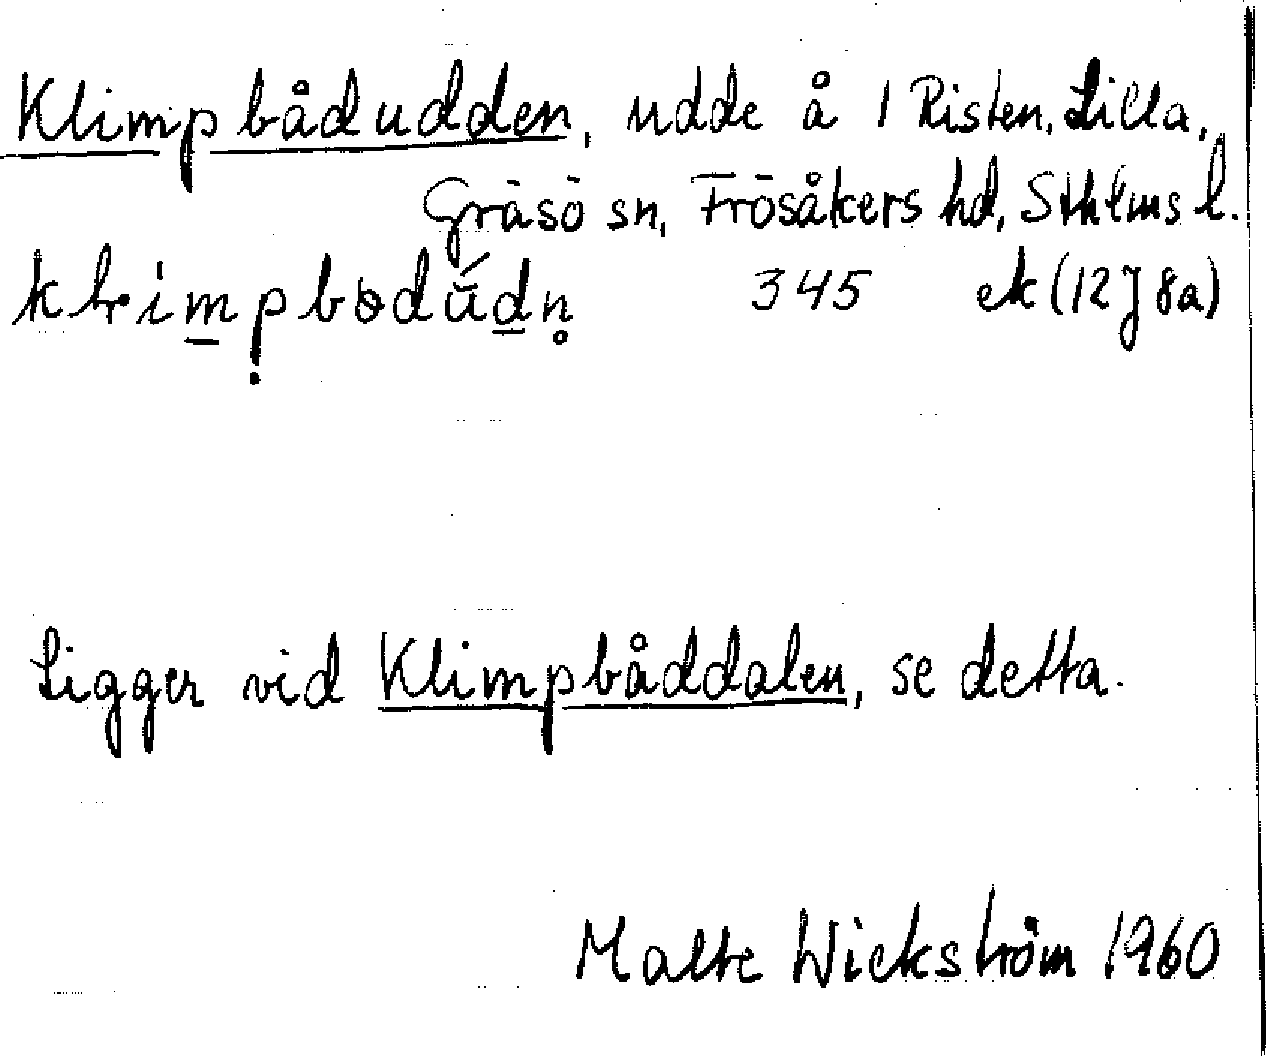 Klimpbådudden, udde å 1 Risten, Lilla,
Gräsö sn, Frösåkers hd, Sthlms l.
345 ek (12J 8a)
Ligger vid Klimpbåddalen, se detta.
Malte Wickström 1960